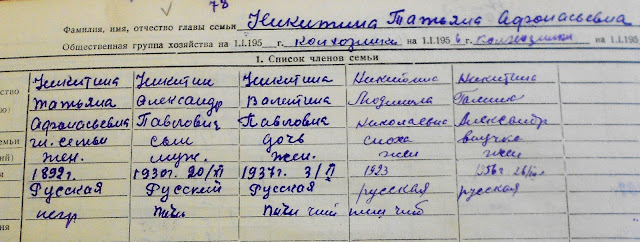 78
Фамилия, имя, отчество главы семьи Никитина Татьяна Афонасьевна
Общественная группа хозяйства на 1.I.195 г. колхозники на 1.I.195 6 г. колхозники на 1.I.195
1. Список членов семьи
Никитина Никитин Никитина Никитина Никитина
Татьяна Александр Валентина Людмила Галина
Афонасьевна Павлович Павловна Николаевна Александр
гл. семьи сын дочь сноха внучка
жен. муж. жен. жен жен
1892г. 1930г. 20/XI 1937г. 3/II 1923 1956г
Русская Русский Русская русская русская
негр